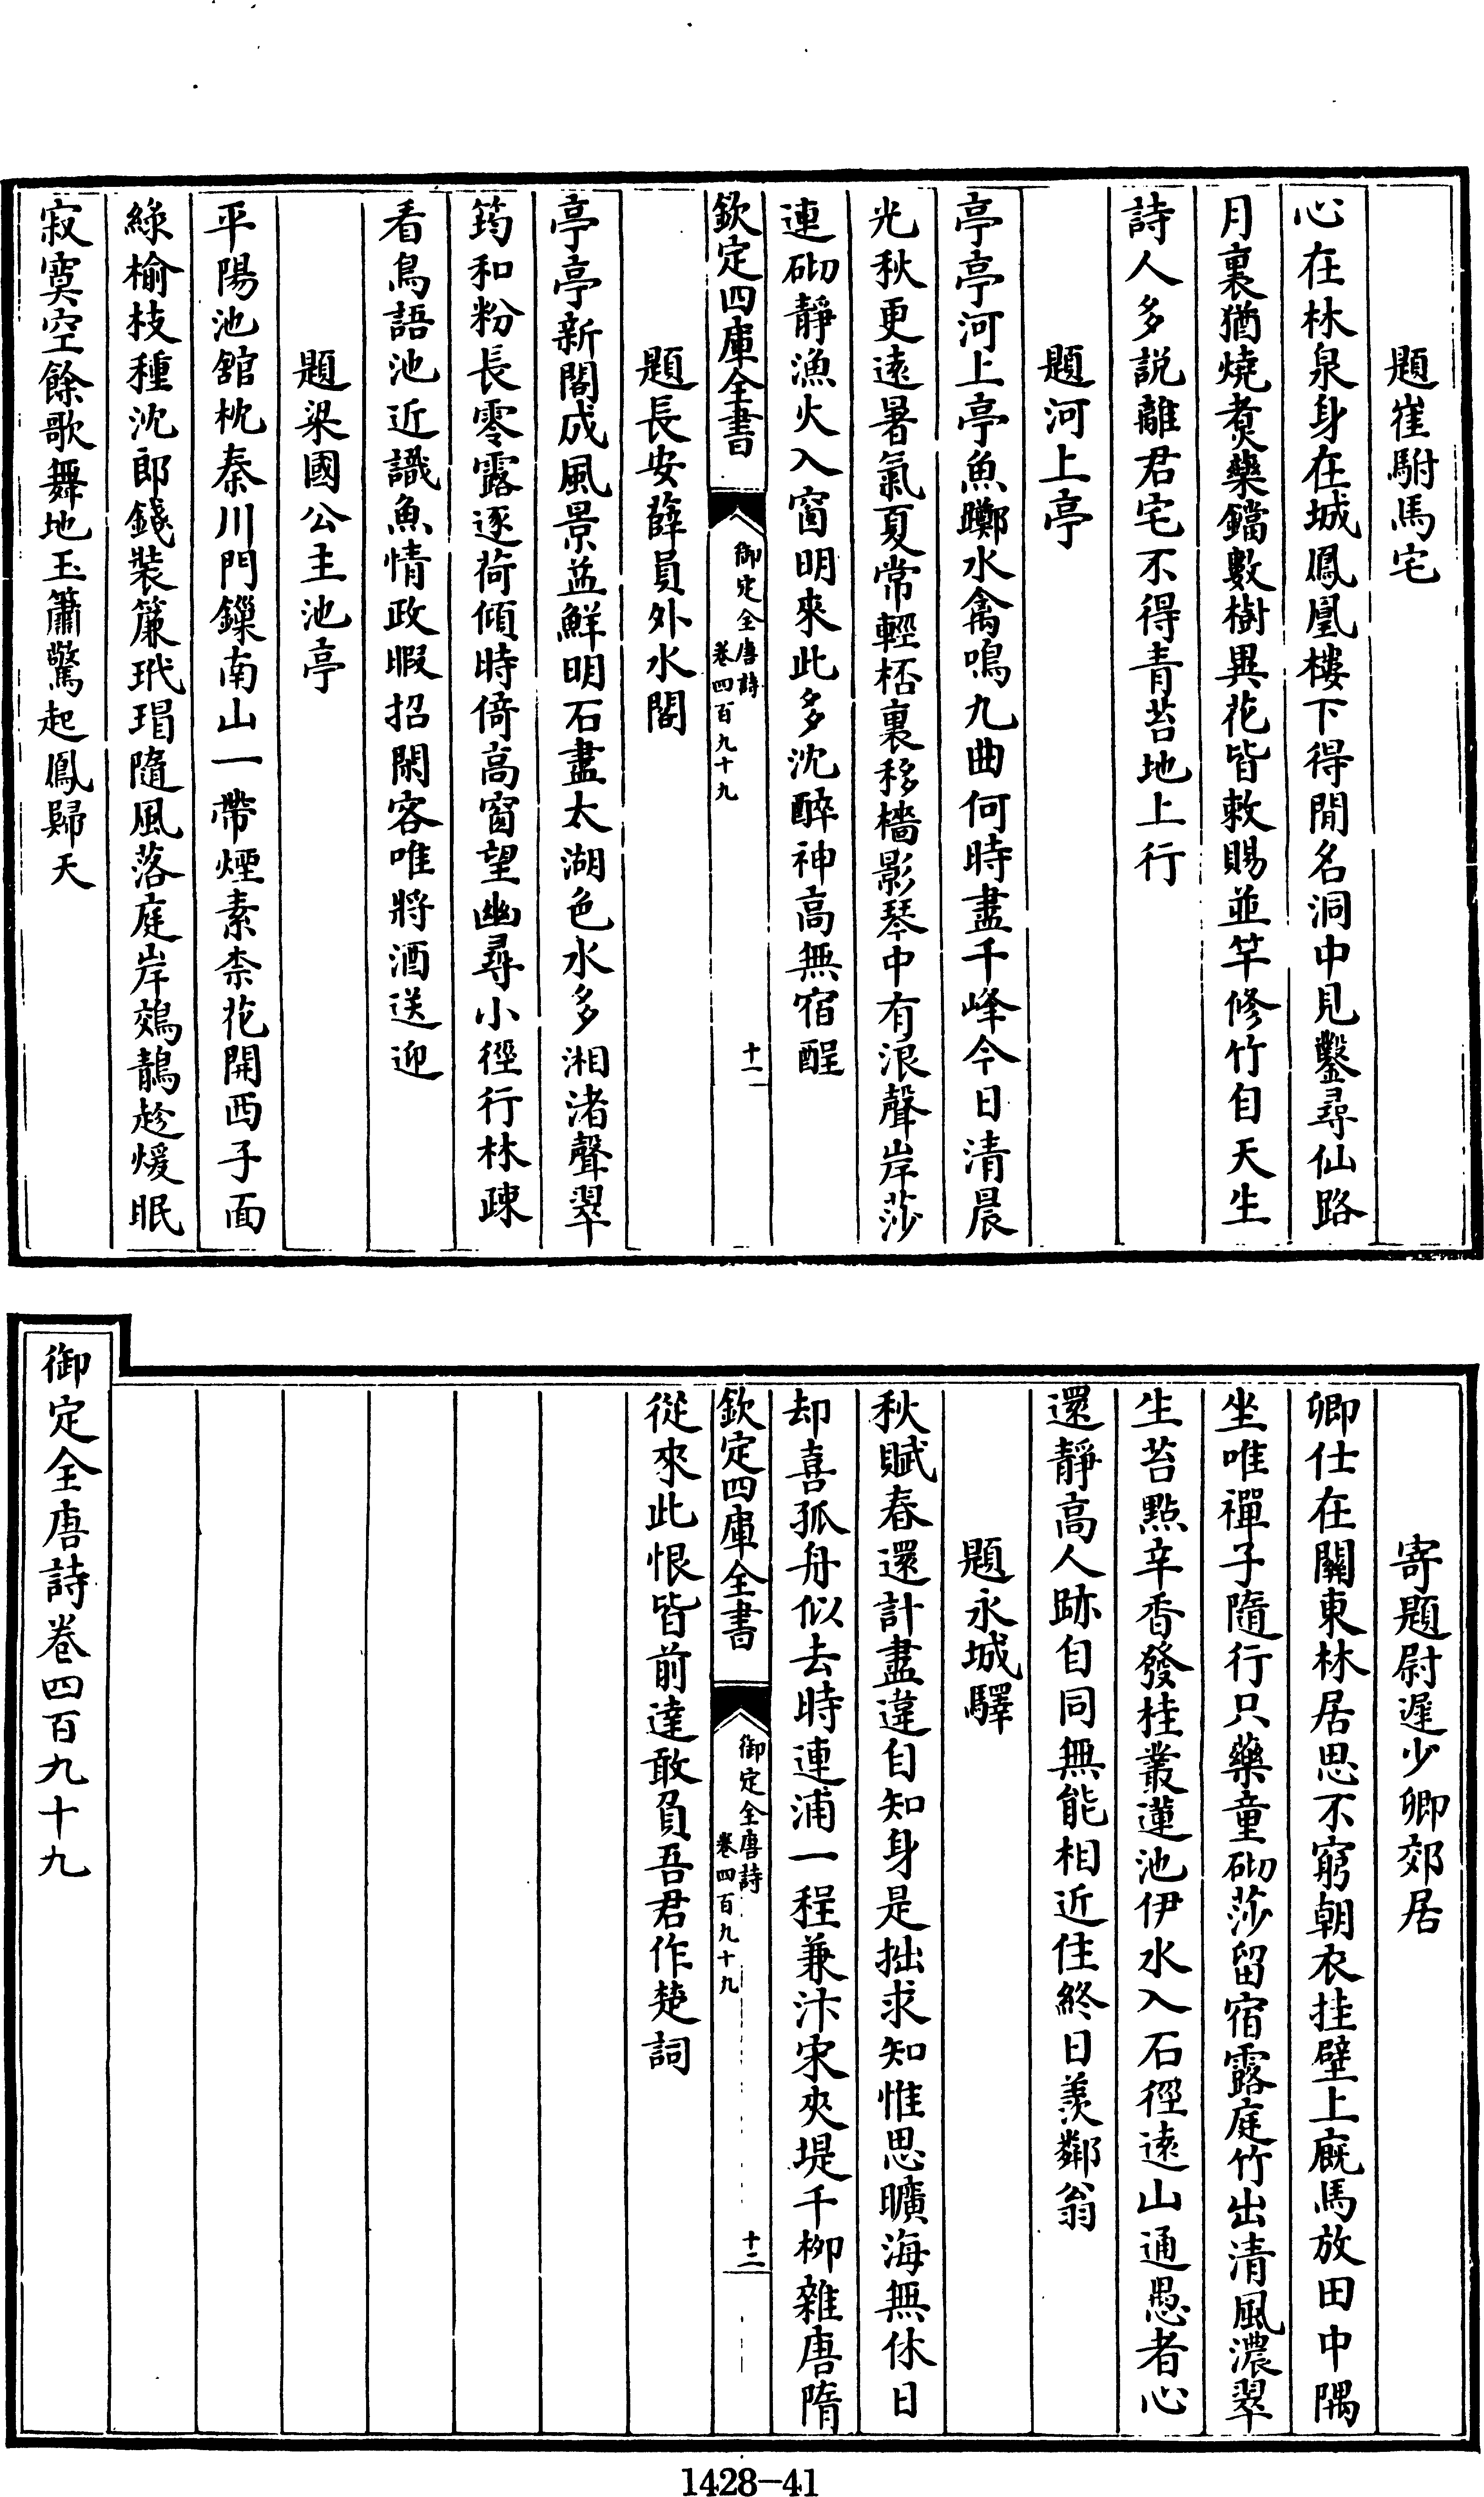 題崔駙馬宅
心在林泉身在城鳳凰樓下得閒名洞中見鑿尋仙路
月裏猶燒煮藥鐺數樹異花皆敕賜並竿修竹自天生
詩人多説離君宅不得青苔地上行
題河上亭
亭亭河上亭魚躑水禽鳴九曲何時盡千峰今日清晨
光秋更遠暑氣夏常輕桮裏移檣影琴中有浪聲岸莎
連砌靜漁火入窗明來此多沈醉神高無宿酲
欽定四庫全書
御定全唐詩
卷四百九十九
十一
題長安薛員外水閣
亭亭新閣成風景益鮮明石盡太湖色水多湘渚聲翠
筠和粉長零露逐荷傾時倚高窗望幽尋小徑行林疎
看鳥語池近識魚情政暇招閑客唯將酒送迎
題梁國公主池亭
平陽池舘枕秦川門鏁南山一帶煙素柰花開西子面
綠榆枝種沈郎錢裝簾玳瑁隨風落庭岸鵁鶄趁煖眠
寂寞空餘歌舞地玉簫驚起鳳歸天
寄題尉遲少卿郊居
卿仕在關東林居思不窮朝衣挂壁上廐馬放田中隅
坐唯禪子隨行只藥童砌莎留宿露庭竹出清風濃翠
生苔點辛香發桂叢蓮池伊水入石徑遠山通愚者心
還靜高人跡自同無能相近住終日羨鄰翁
題永城驛
秋賦春還計盡違自知身是拙求知惟思曠海無休日
却喜孤舟似去時連浦一程兼汴宋夾堤千栁雜唐隋
欽定四庫全書
御定全唐詩
卷四百九十九
十二
從來此恨皆前達敢負吾君作楚詞
御定全唐詩卷四百九十九
1428-41